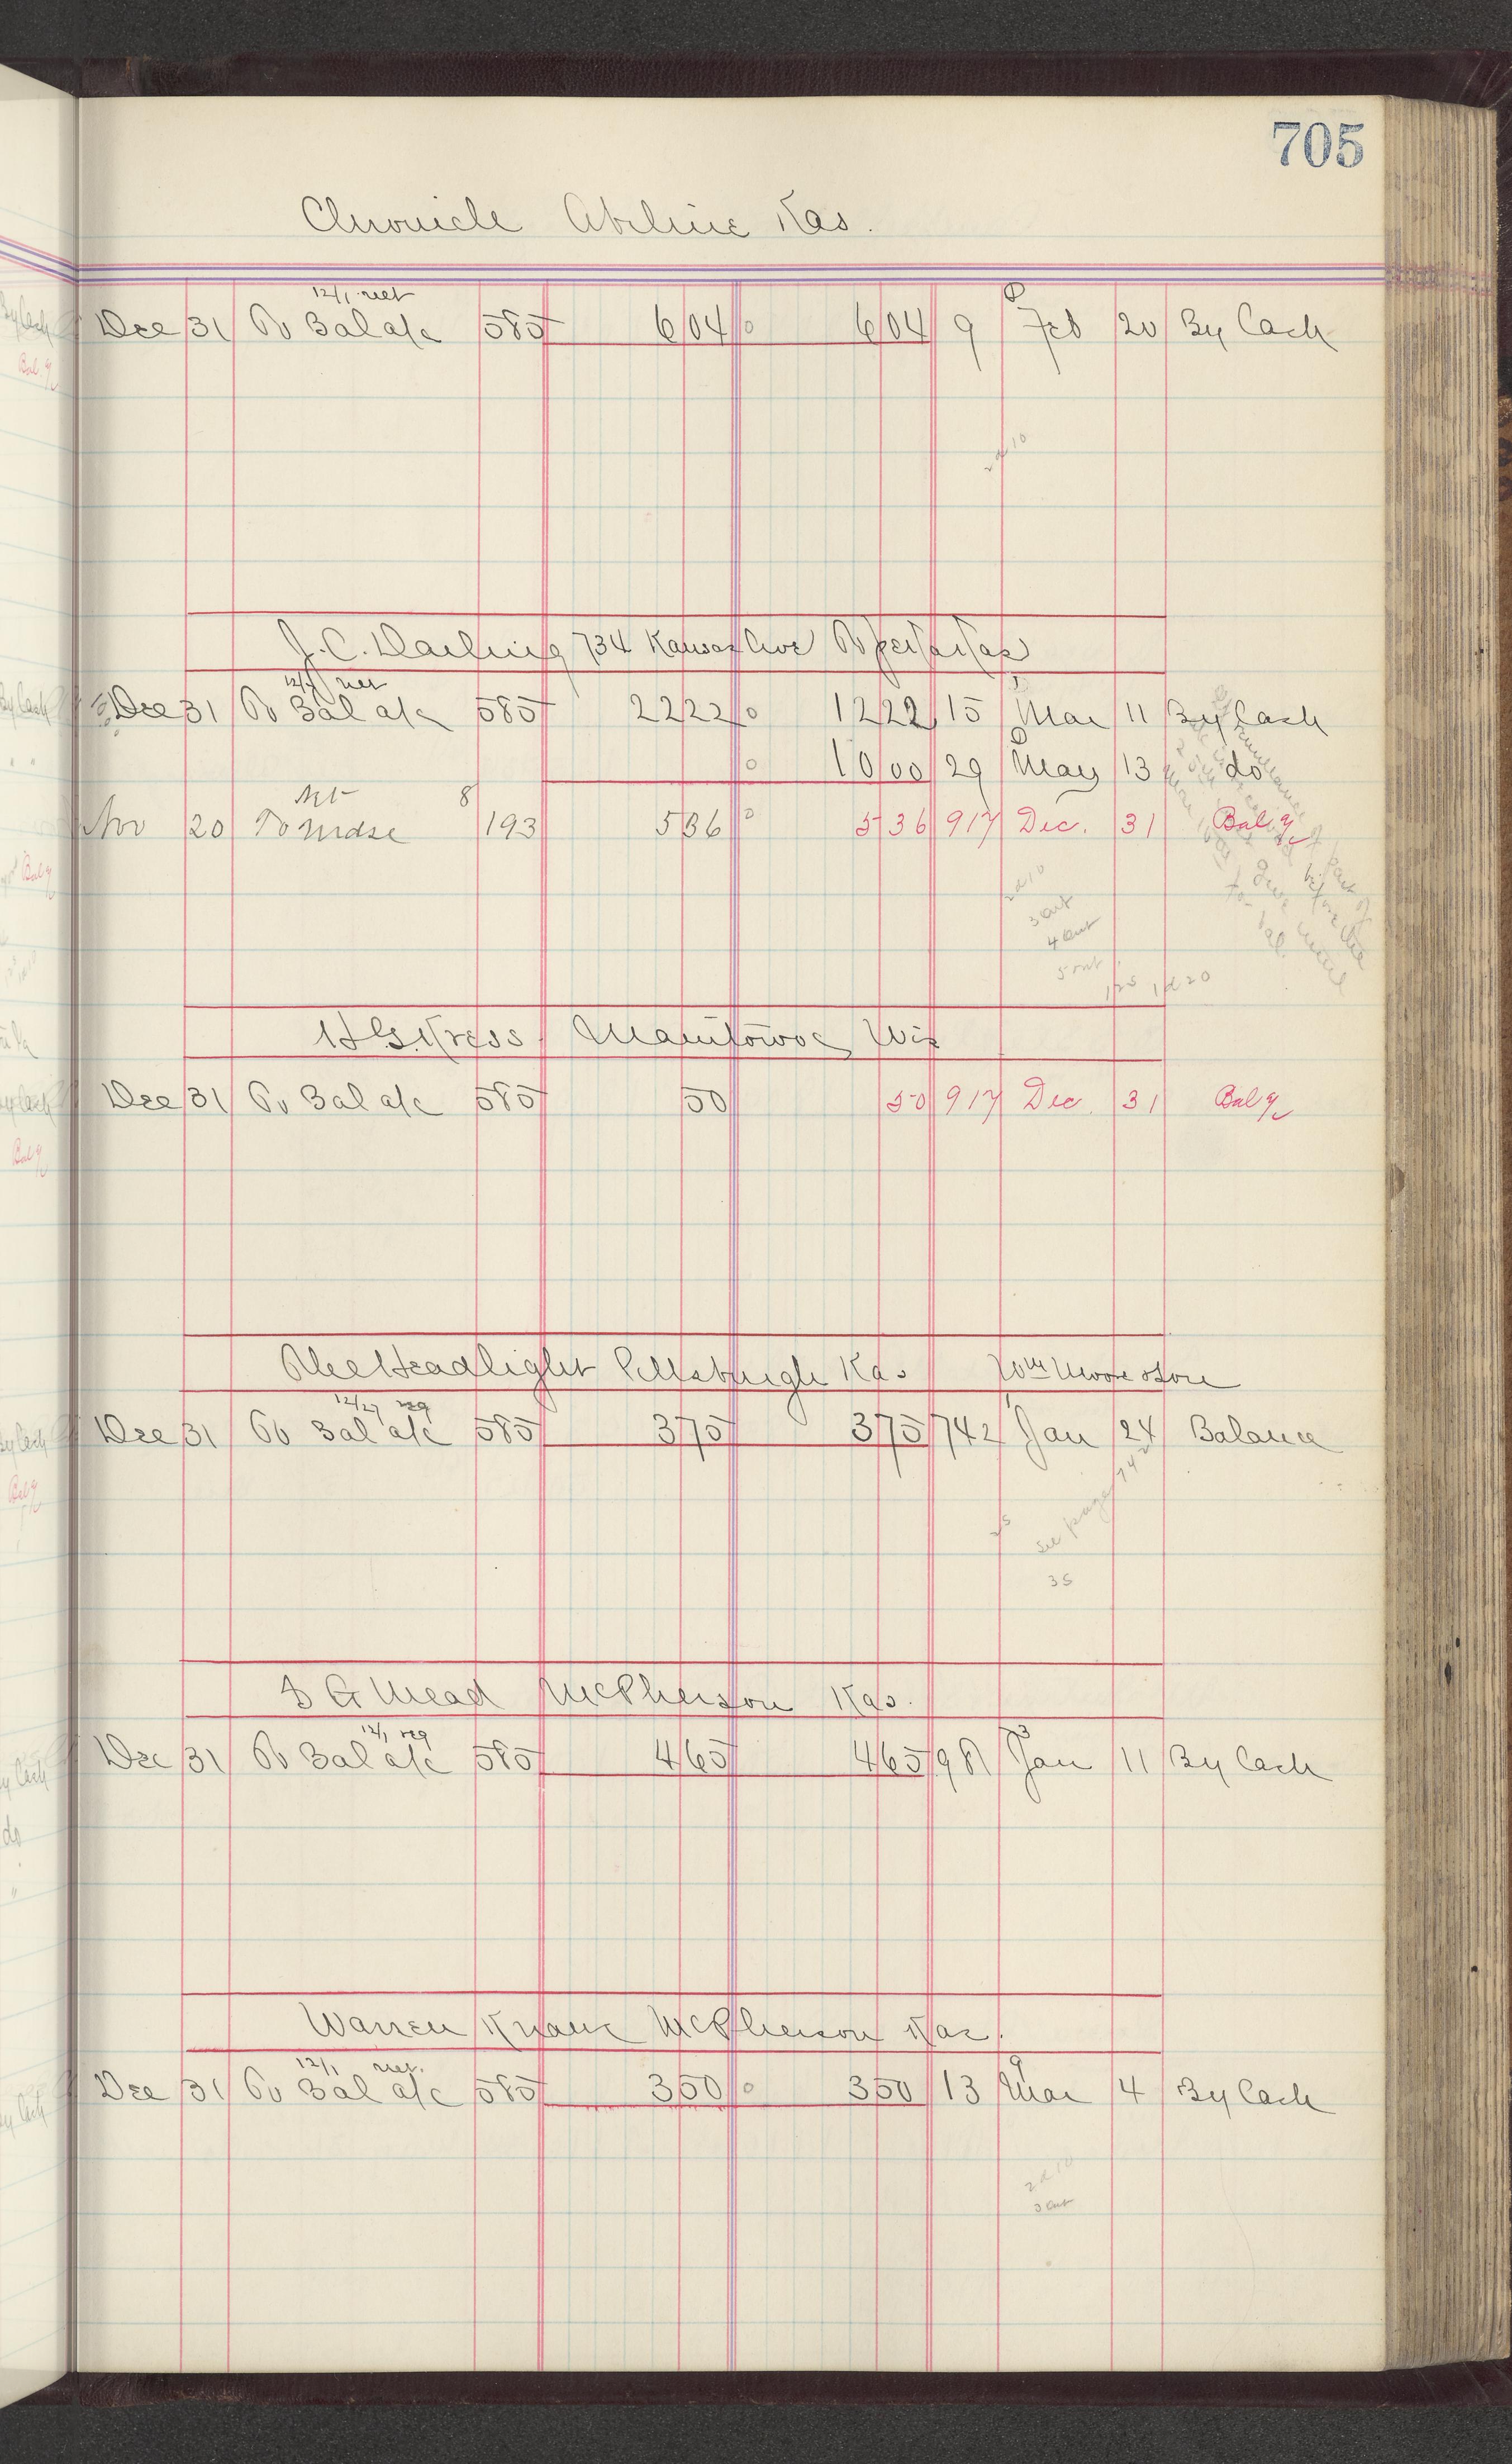 705
Chronicle Abiline Kas.
12/1 net
Dec 31 To Bal a/c 585 6 04 6 04 9 Feb 20 By Cash
2d10
J. C. Darling 734 Kansas Ave Topeka Kas
12/1 net
Dec 31 To Bal a/c 585 22 22 12 22 15 Mar 11 By Cash
10 00 29 May 13 do
Nov 20 To Mdse 8 193 5 36 5 36 917 Dec. 31 Bal
2d10
3 Out
4 Out
5 out
1/25 1d20
H. G. Kress Manitowoc Wis
Dec 31 To Bal a/c 585 50 50 917 Dec. 31 Bal
The Headlight Pittsburgh Kas Wm Moore & Son
12/27 reg
Dec 31 To Bal a/c 585 3 75 3 75 742 Jan 24 Balance
see page 742
35
S G Mead McPherson Kas.
12/1 reg
Dec 31 To Bal a/c 585 4 65 4 65 981 Jan 11 By Cash
Warren Knaus McPherson Kas.
12/1 net.
Dec 31 To Bal a/c 585 3 50 3 50 13 Mar 4 By Cash
2d10
3 out